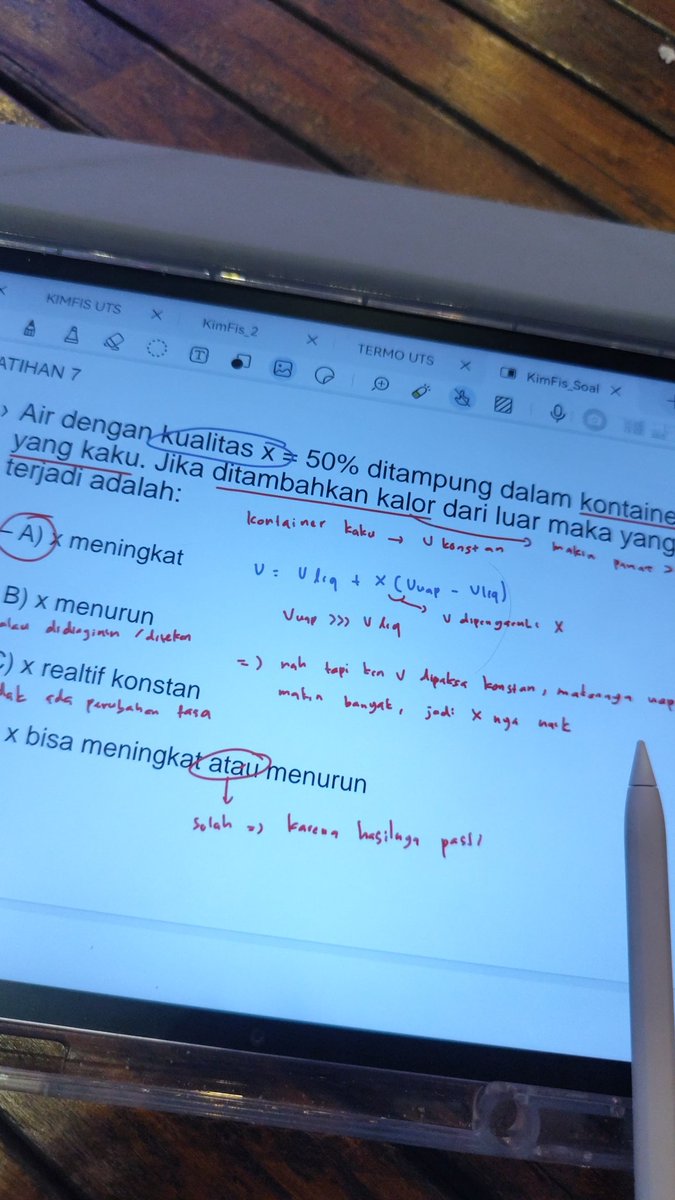 KIMFIS UTS
KimFis_2
TERMO UTS
KimFis_Soal
ATIHAN 7
Air dengan kualitas x = 50% ditampung dalam kontaine
yang kaku. Jika ditambahkan kalor dari luar maka yang
terjadi adalah:
kontainer kaku → V konstan → makin panas
A) x meningkat
V = Vliq + x (Vuap - Vliq)
B) x menurun
Vuap >>> Vliq
V dipengaruhi x
kalau didinginin / ditekan
C) x realtif konstan
=> nah tapi krn V dipaksa konstan, makannya uap
dak ada perubahan fasa
makin banyak, jadi x nya naik
x bisa meningkat atau menurun
salah => karena hasilnya pasti